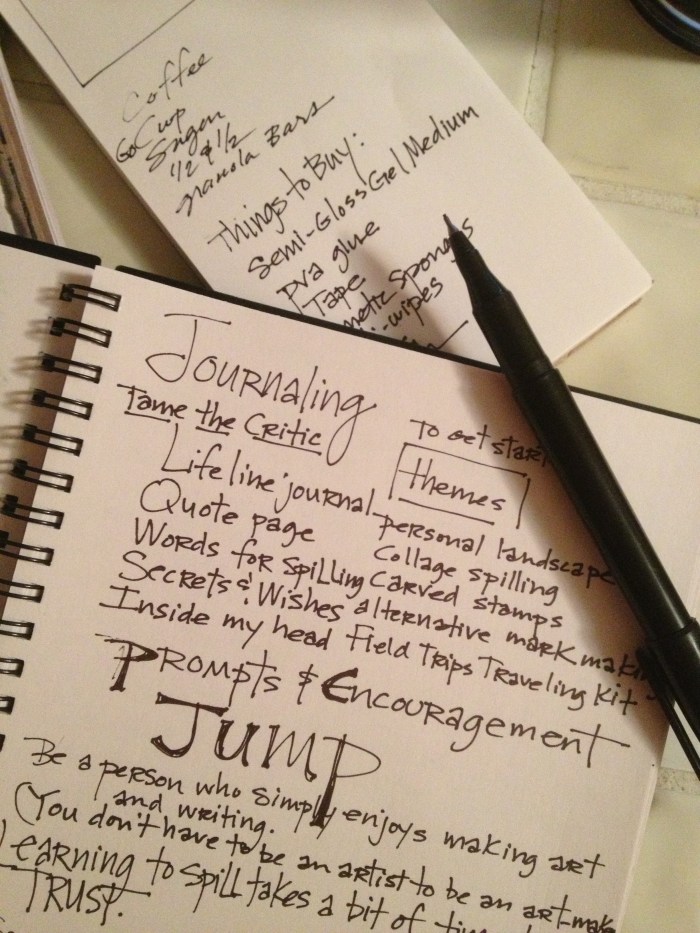 Coffee
Go Cup
Sugar
1/2 & 1/2
granola Bars
Things to Buy:
Semi-Gloss Gel Medium
pva glue
Tape
sponges
-wipes
Journaling
Tame the Critic
Life line journal
Quote page
Words for Spilling
Secrets & Wishes
Inside my head
To get start
themes
personal landscape
Collage spilling
Carved stamps
alternative mark making
Field Trips Traveling kit
Prompts & Encouragement
JUMP
Be a person who simply enjoys making art
and writing.
(You don't have to be an artist to be an art-make
Learning to spill takes a bit of
TRUST.